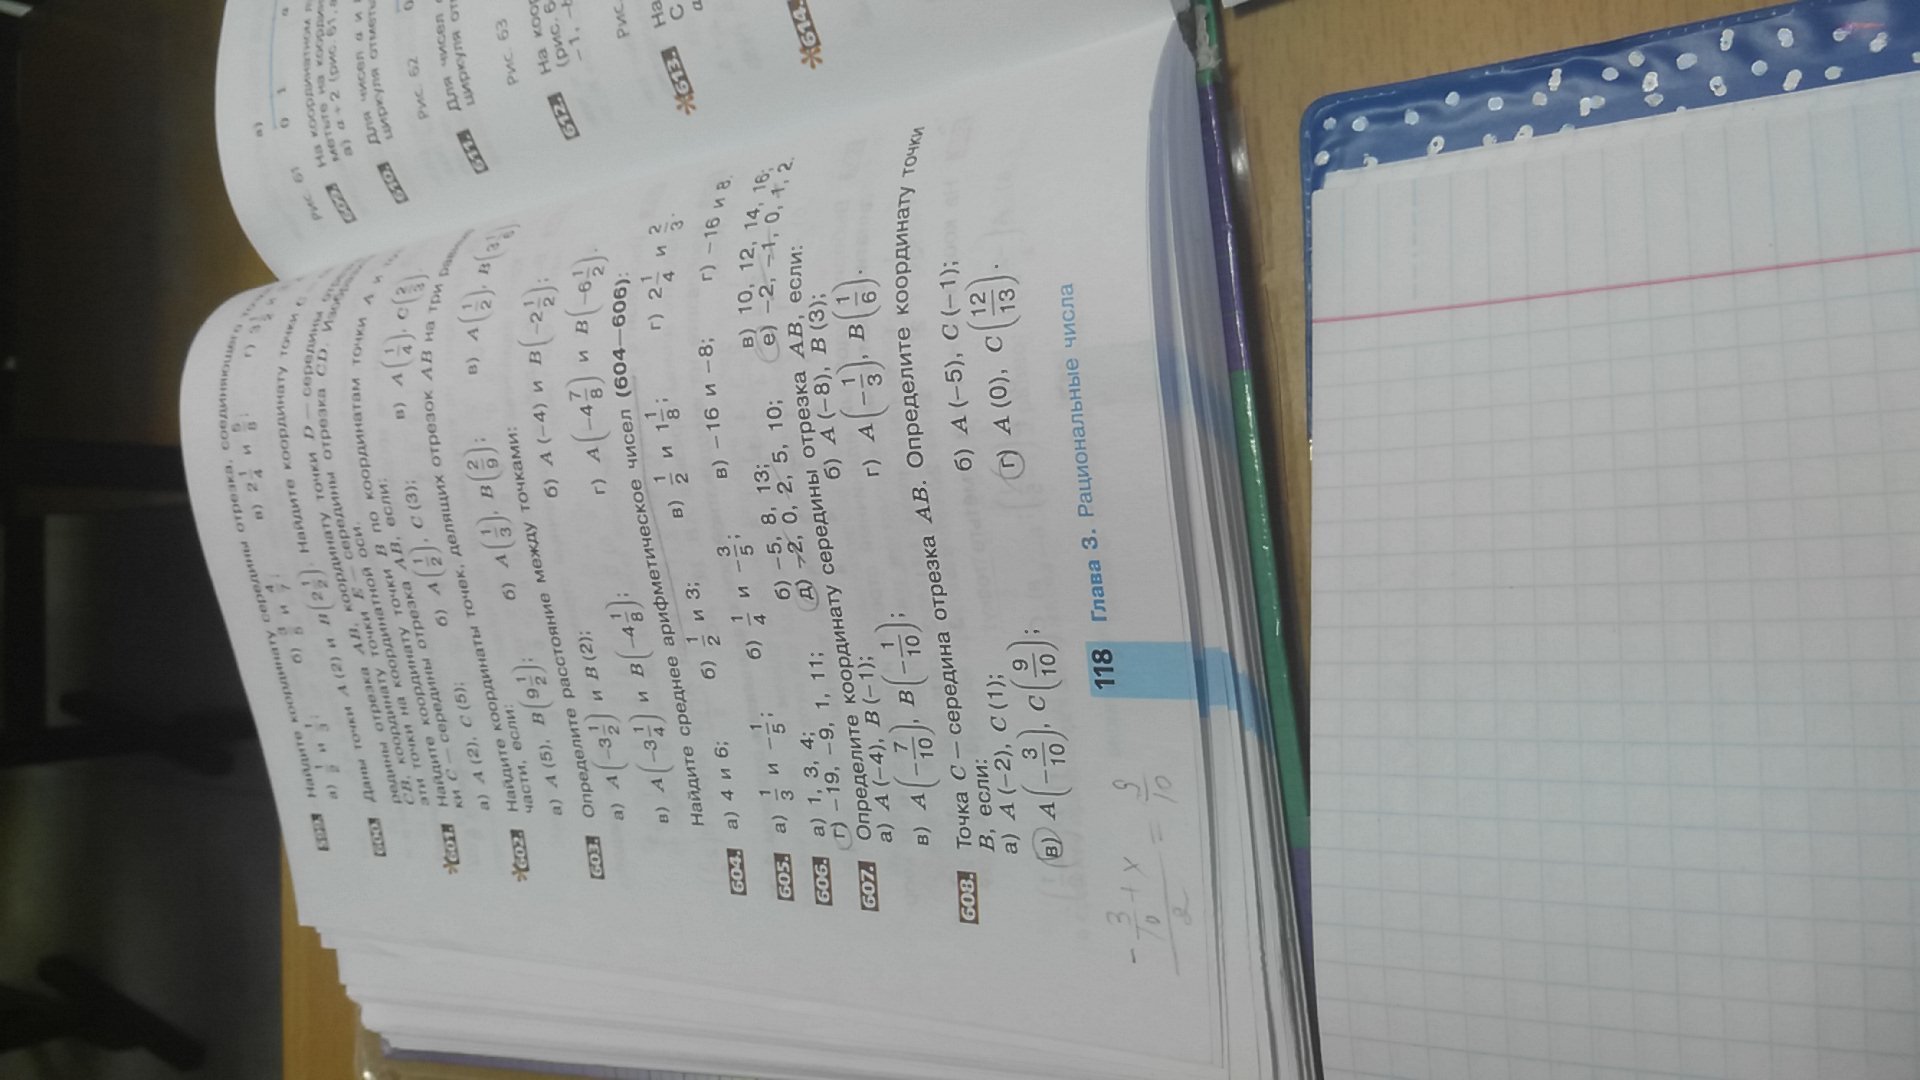 599. Найдите координату середины отрезка, соединяющего
а) 1/2 и 1/3; б) 3/5 и 4/7; в) 2 1/4 и 5/8; г) 3 1/2 и
600. Даны точки A (2) и B (2 1/2). Найдите координату точки C —
середины отрезка AB, координату точки D — середины
CB, координату точки E — середины отрезка CD.
эти точки на координатной оси.
*601. Найдите координату точки B по координатам точки A и
ки C — середины отрезка AB, если:
а) A (2), C (5); б) A (1/2), C (3); в) A (1/4), C (2/3).
*602. Найдите координаты точек, делящих отрезок AB на три равные
части, если:
а) A (5), B (9 1/2); б) A (1/3), B (2/9); в) A (1/2), B (3 1/6)
603. Определите расстояние между точками:
а) A (−3 1/2) и B (2); б) A (−4) и B (−2 1/2);
в) A (−3 1/4) и B (−4 1/8); г) A (−4 7/8) и B (−6 1/2).
Найдите среднее арифметическое чисел (604—606):
604. а) 4 и 6; б) 1/2 и 3; в) 1/2 и 1 1/8; г) 2 1/4 и 2/3.
605. а) 1/3 и −1/5; б) 1/4 и −3/5; в) −16 и −8; г) −16 и 8.
606. а) 1, 3, 4; б) −5, 8, 13; в) 10, 12, 14, 16;
г) −19, −9, 1, 11; д) −2, 0, 2, 5, 10; е) −2, −1, 0, 1, 2.
607. Определите координату середины отрезка AB, если:
а) A (−4), B (−1); б) A (−8), B (3);
в) A (−7/10), B (−1/10); г) A (−1/3), B (1/6).
608. Точка C — середина отрезка AB. Определите координату точки
B, если:
а) A (−2), C (1); б) A (−5), C (−1);
в) A (−3/10), C (9/10); г) A (0), C (12/13).
118 Глава 3. Рациональные числа
(−3/10 + x)/2 = 9/10
а)
0 1 a
Рис. 61
609. На координатной
метьте на координ
а) a + 2 (рис. 61, а
610. Для чисел a и
циркуля отметь
Рис. 62
611. Для чисел
циркуля от
Рис. 63
612. На коор
(рис. 6
−1, −
Рис.
*613. На
C
a
*614.